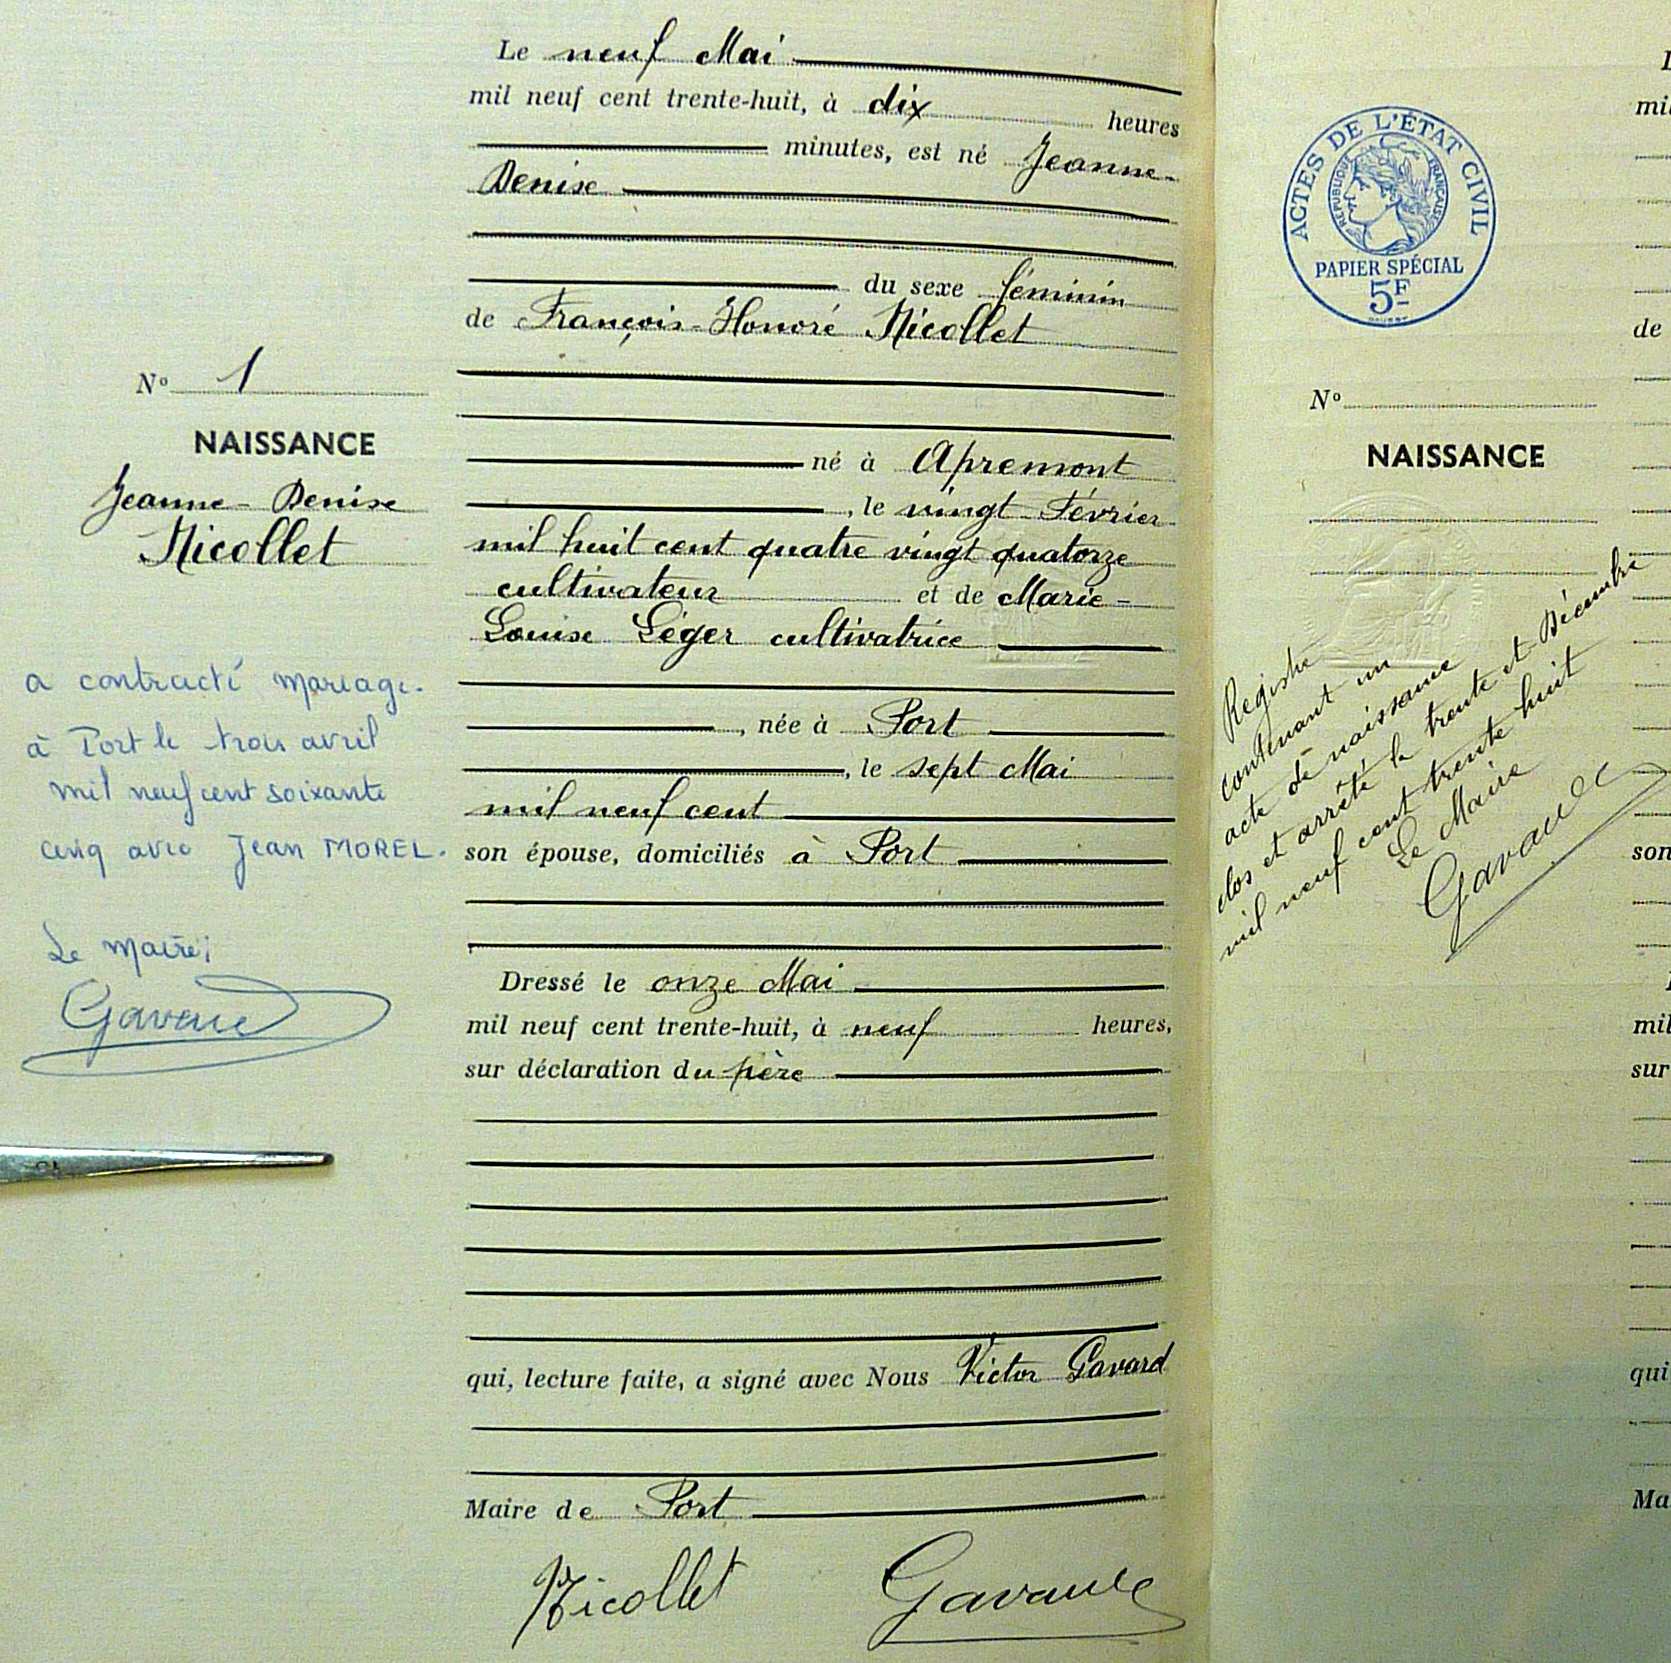 Le neuf Mai
mil neuf cent trente-huit, à dix heures
minutes, est né Jeanne-
Denise
du sexe féminin
de François-Honoré Nicollet
né à Apremont
, le vingt Février
mil huit cent quatre vingt quatorze
cultivateur et de Marie-
Louise Léger cultivatrice
, née à Port
, le sept Mai
mil neuf cent
son épouse, domiciliés à Port
Dressé le onze Mai
mil neuf cent trente-huit, à neuf heures,
sur déclaration du père
qui, lecture faite, a signé avec Nous Victor Gavard
Maire de Port
Nicollet Gavard
Nº 1
NAISSANCE
Jeanne-Denise
Nicollet
a contracté mariage.
à Port le trois avril
mil neuf cent soixante
cinq avec Jean MOREL.
Le Maire;
Gavard
ACTES DE L'ÉTAT CIVIL
RÉPUBLIQUE FRANÇAISE
PAPIER SPÉCIAL
5F
Nº
NAISSANCE
Registre
contenant un
acte de naissance
clos et arrêté le trente et Décembre
mil neuf cent trente huit
Le Maire
Gavard
mil
de
son
mil
sur
qui
Ma